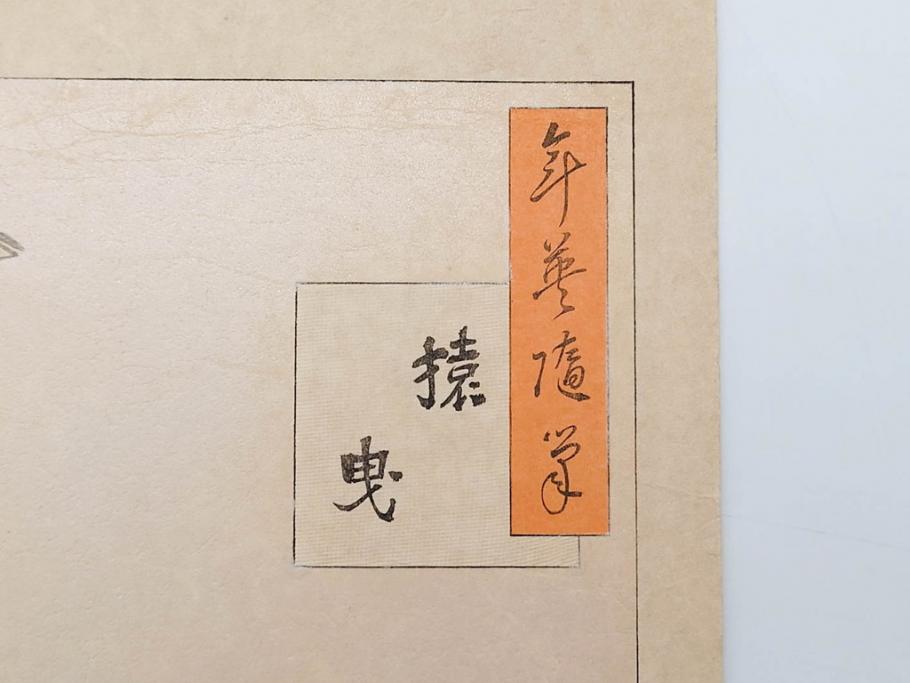 年英随筆
猿
曳